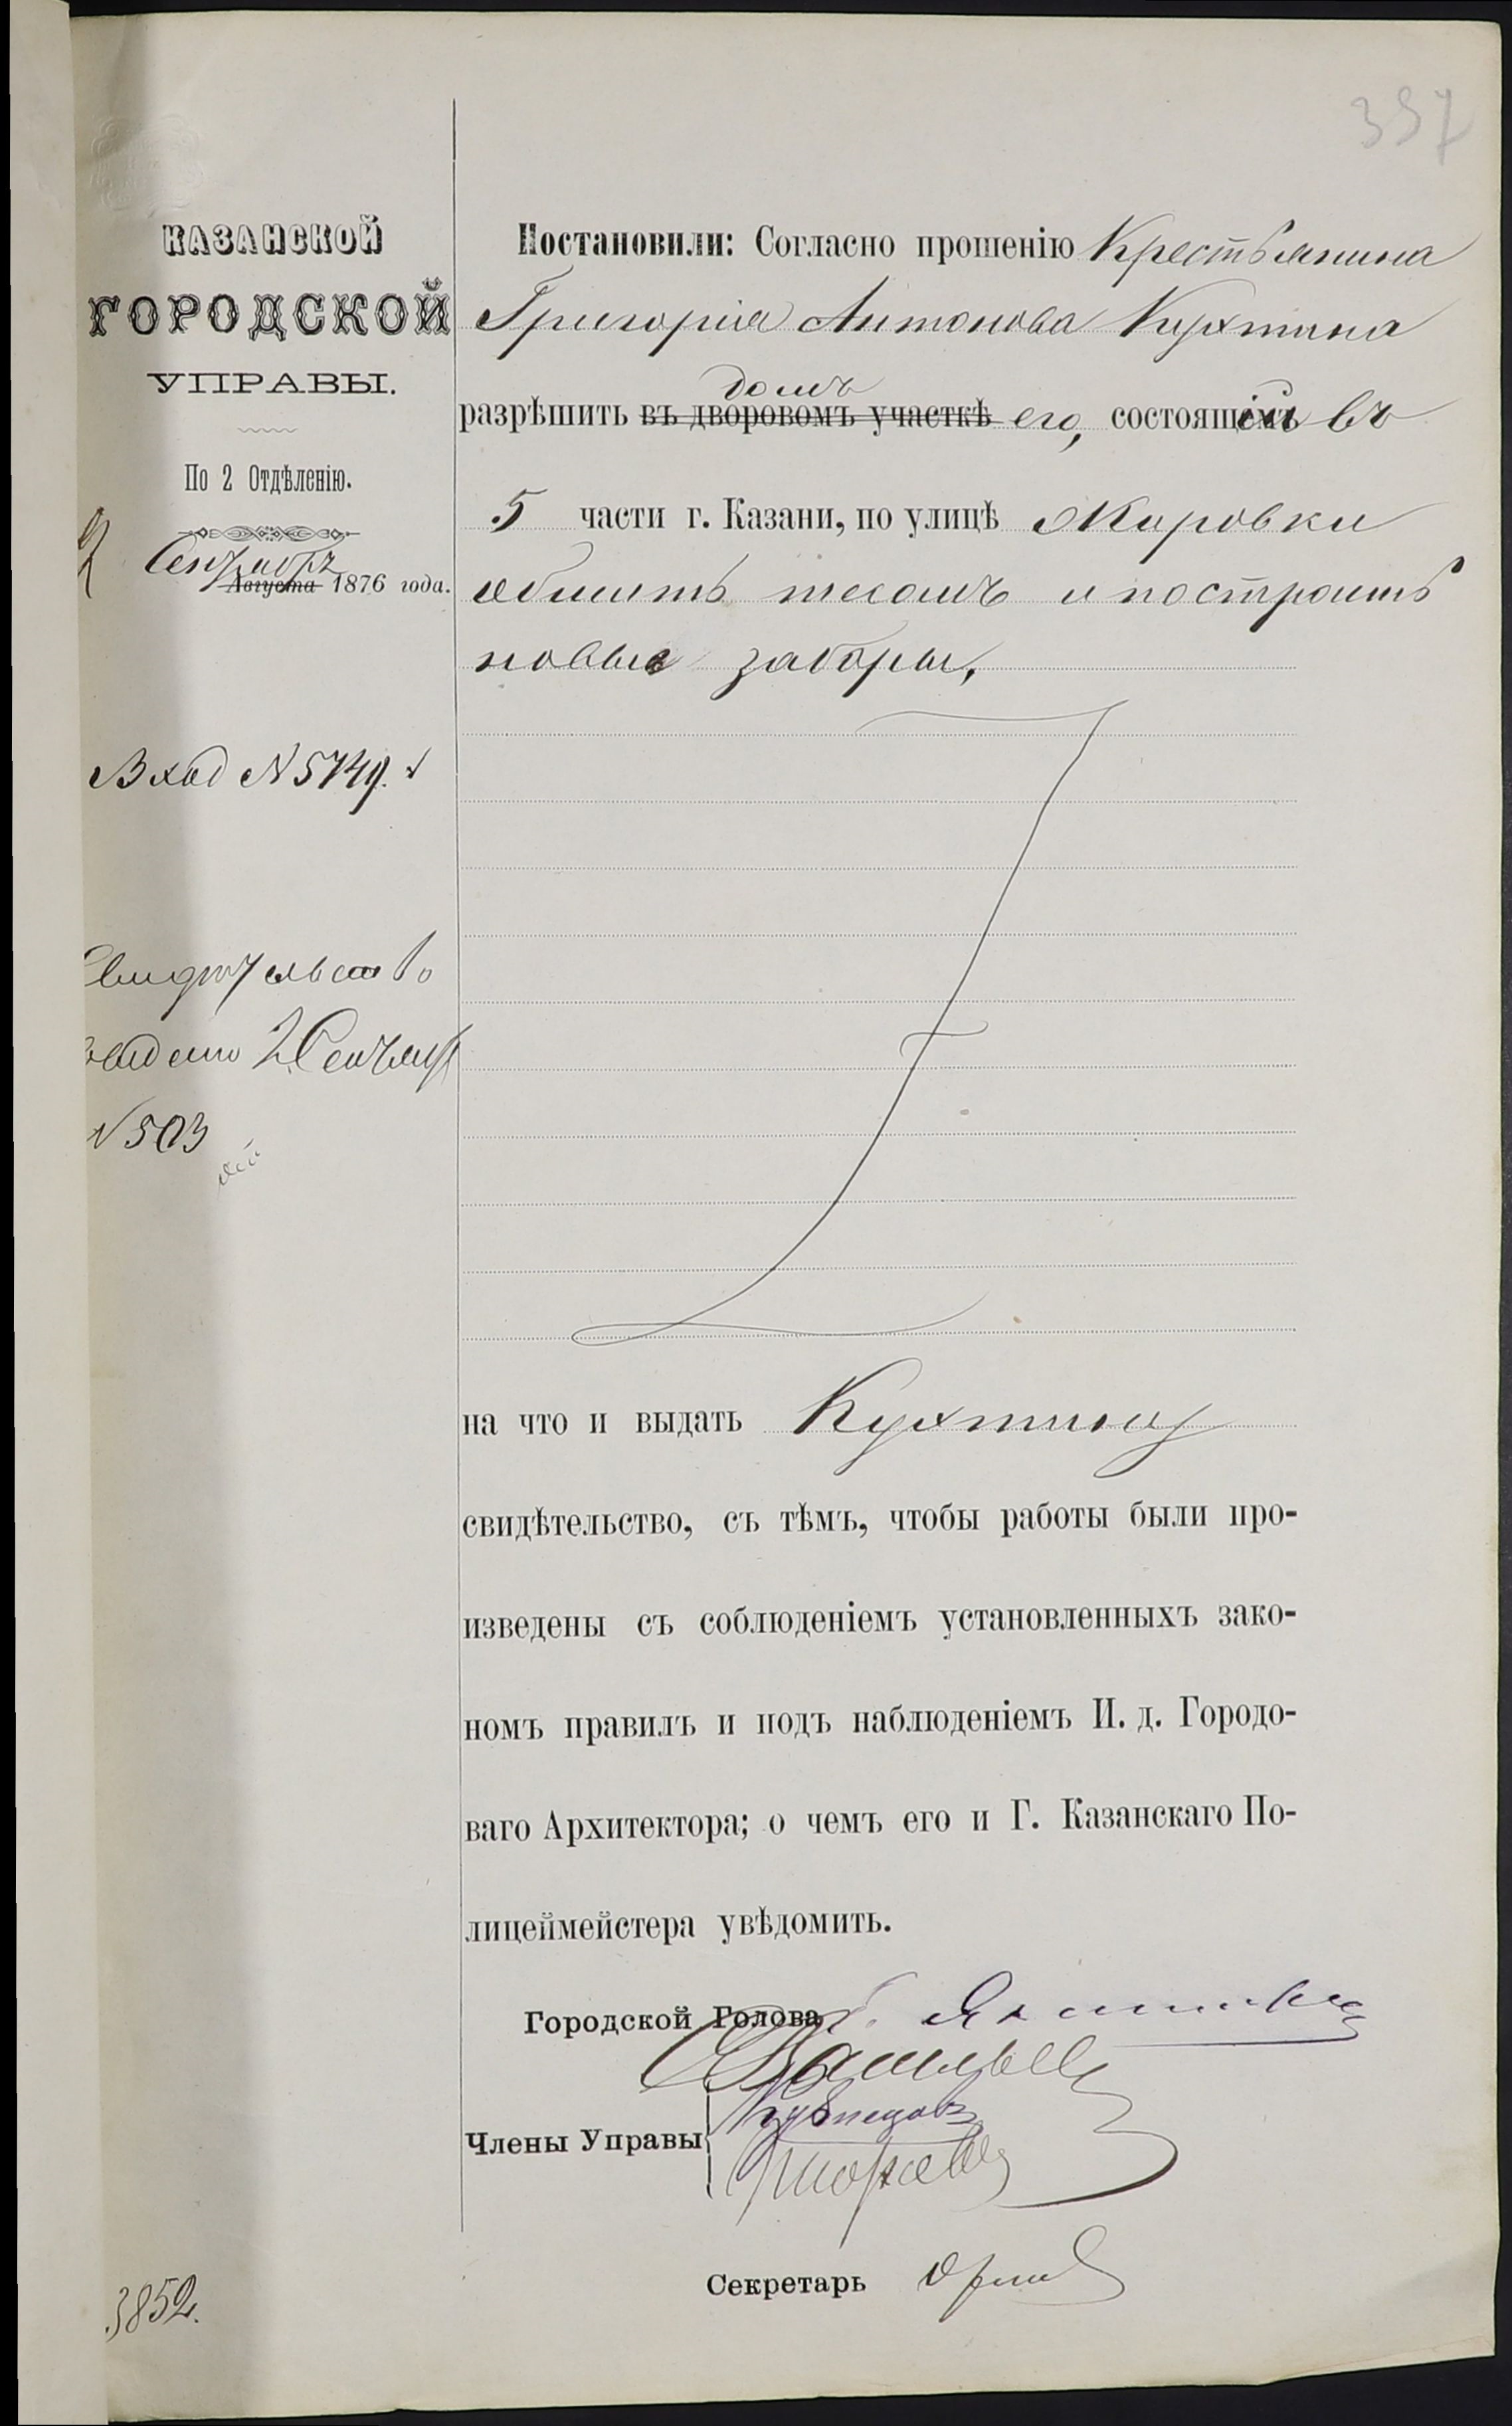 397
КАЗАНСКОЙ
ГОРОДСКОЙ
УПРАВЫ.
По 2 Отдѣленію.
2 Сентября
Августа 1876 года.
Вход N 5749.
Свидѣтельство
выдано 2 Сентября
N 503
3852.
Постановили: Согласно прошенію Крестьянина
Григорія Антонова Кухтина
домъ
разрѣшить въ дворовомъ участкѣ его, состоящій въ
5 части г. Казани, по улицѣ
обшить тесомъ и построить
новые заборы,
на что и выдать Кухтину
свидѣтельство, съ тѣмъ, чтобы работы были про-
изведены съ соблюденіемъ установленныхъ зако-
номъ правилъ и подъ наблюденіемъ И. д. Городо-
ваго Архитектора; о чемъ его и Г. Казанскаго По-
лицеймейстера увѣдомить.
Городской Голова
Члены Управы
Кузнецовъ
Секретарь